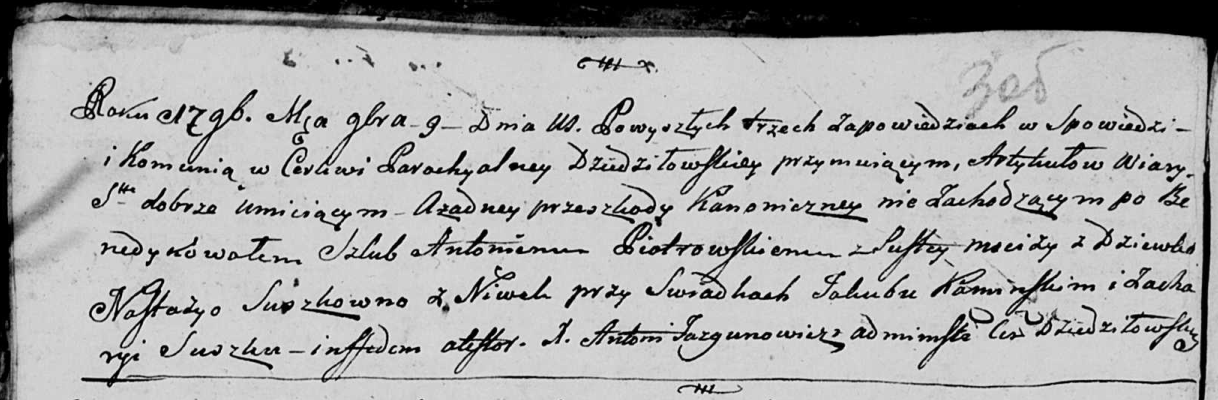 Zeб
Roku 1796. Mca 9bra 9 Dnia W. Powyszłych trzech Zapowiedziach w Spowiedzi-
i Komunią w Cerkwi Parochyalney Dziedziłowskiey przymuiącym, Artykułow Wiary
S. dobrze Umieiącym - A zadney przeszkody Kanoniczney nie Zachodzącym po Be
nedykowałem Szlub Antoniemu Piotrowskiemu z mcizy z Dziewko
Nastazyo Suszkowno z Niwek przy Swiadkach Jakubu Kaminskim i Zacha
ryi Suszku - in ffidem atestor. X. Antoni Jazgunowicz admimstr Cer Dziedziłowskiey